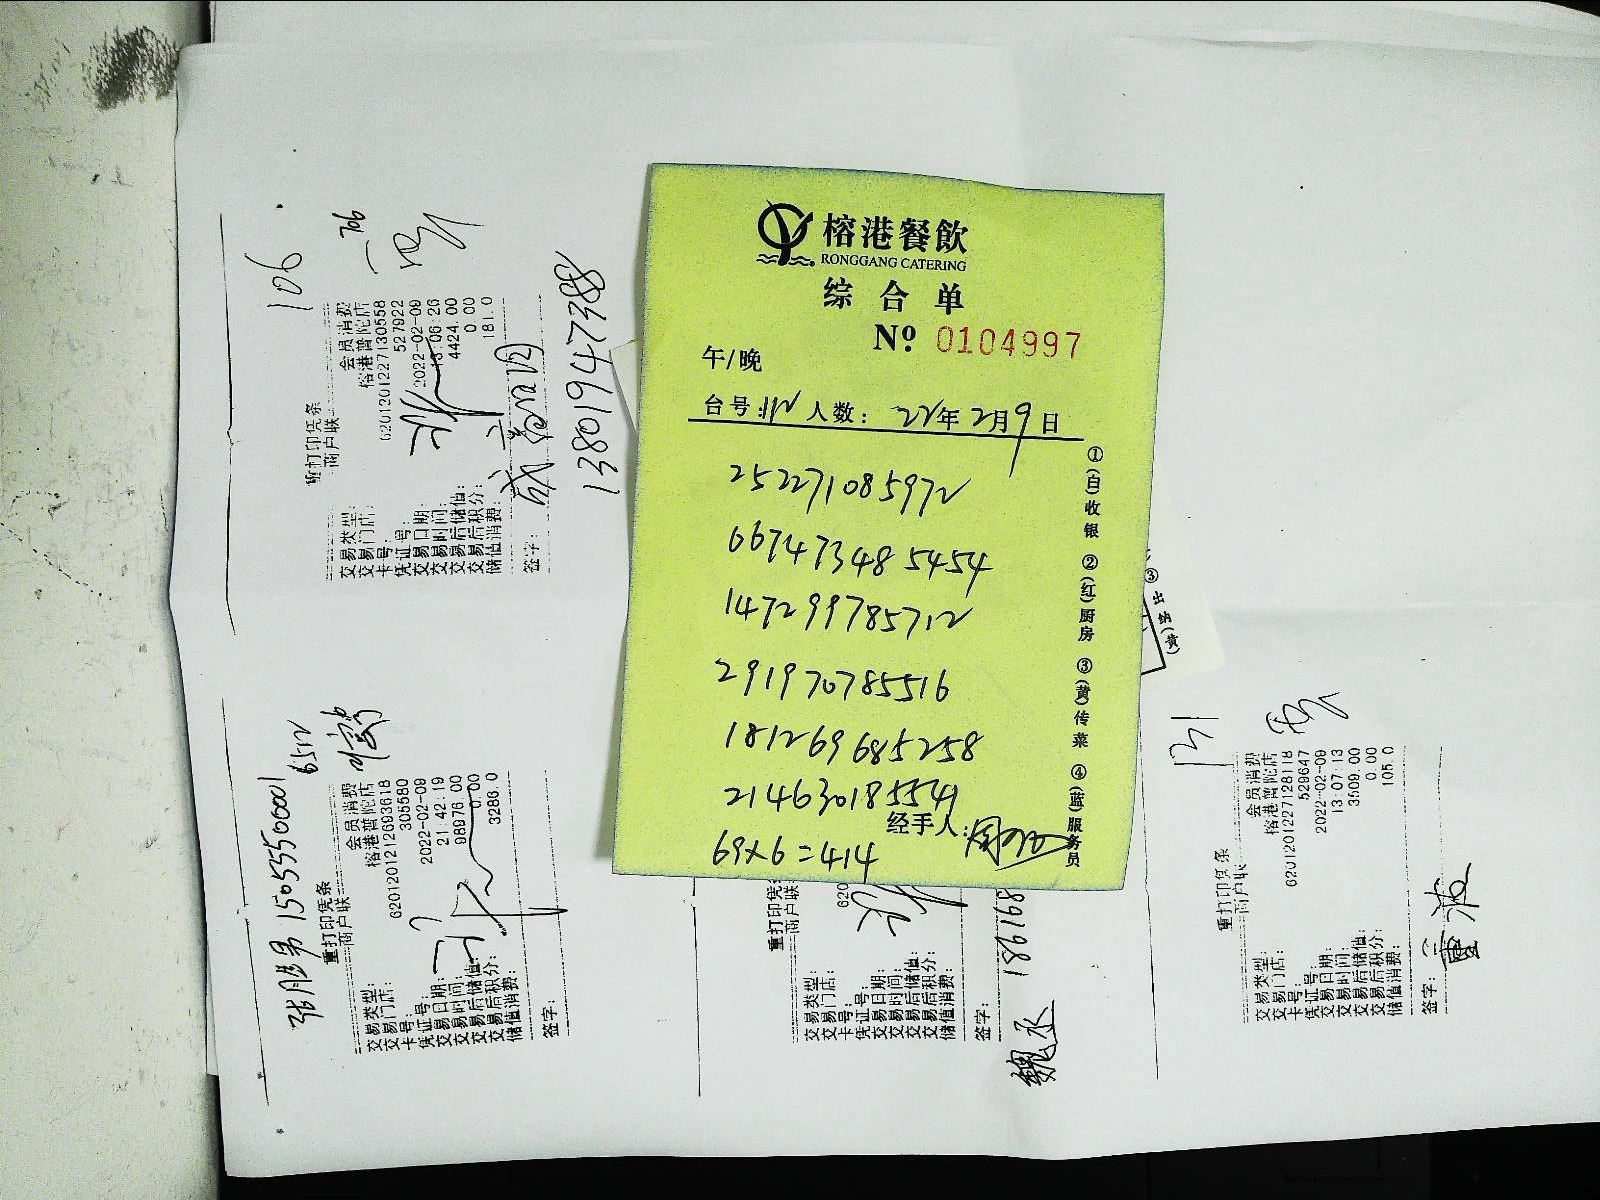 榕港餐飲
RONGGANG CATERING
综合单
No 0104997
午/晚
台号: 人数: 22年2月9日
252271085972
667473485454
147299785712
291970785516
181269685258
214630185541
经手人:
69×6=414
①(白)收银 ②(红)厨房 ③(黄)传菜 ④(蓝)服务员
106
重打印凭条
商户联
交易类型: 会员消费
交易门店: 榕港普陀店
卡号: 6201201227130558
凭证号: 527922
交易日期: 2022-02-09
交易时间: 18:06:26
交易后储值: 4424.00
交易后积分: 0.00
储值消费: 181.0
签字:
13801947388
张胜男 15055550001
6512
重打印凭条
商户联
交易类型: 会员消费
交易门店: 榕港普陀店
卡号: 6201201212693618
凭证号: 305580
交易日期: 2022-02-09
交易时间: 21:42:19
交易后储值: 98976.00
交易后积分: 0.00
储值消费: 3286.0
签字:
重打印凭条
商户联
交易类型:
交易门店:
卡号: 620
凭证号:
交易日期:
交易时间:
交易后储值:
交易后积分:
储值消费:
签字:
魏丞 186168
131
重打印凭条
商户联
交易类型: 会员消费
交易门店: 榕港普陀店
卡号: 6201201227128118
凭证号: 529647
交易日期: 2022-02-09
交易时间: 13:07:13
交易后储值: 3509.00
交易后积分: 0.00
储值消费: 105.0
签字:
③出品(黄)